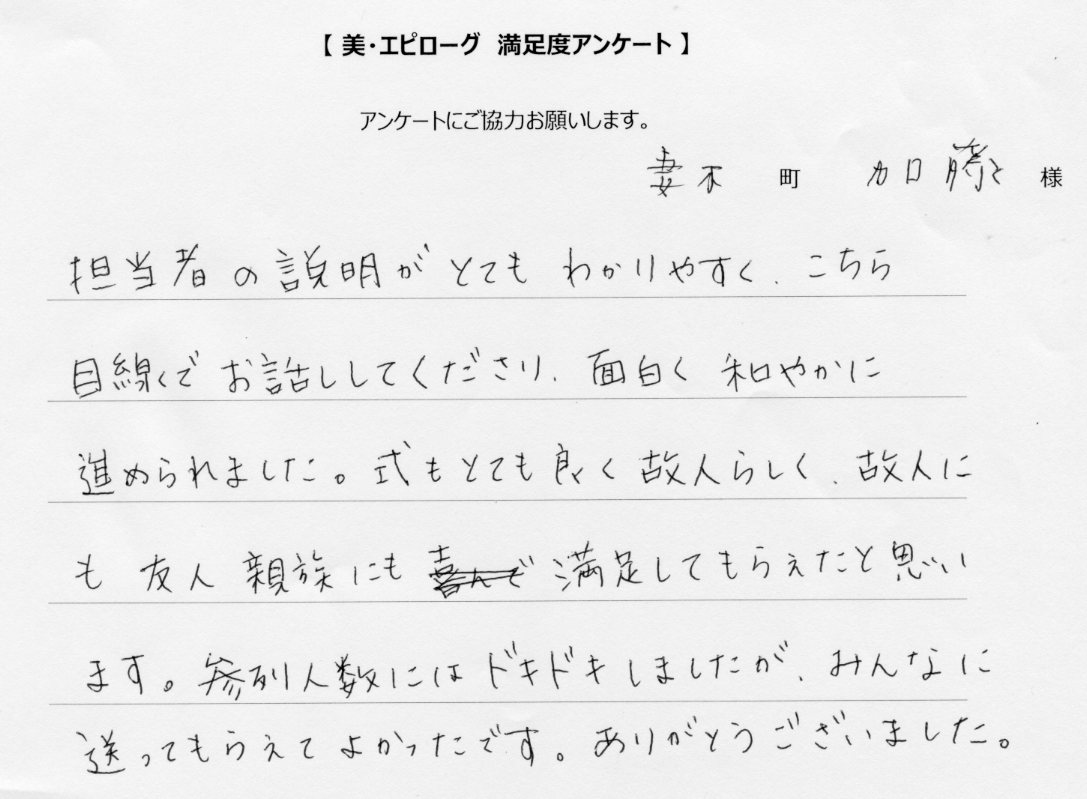 【 美・エピローグ 満足度アンケート 】
アンケートにご協力お願いします。
妻木 町 加藤 様
担当者の説明がとても わかりやすく、こちら
目線でお話ししてくださり、面白く 和やかに
進められました。式もとても良く故人らしく、故人に
も 友人 親族にも 喜んで 満足してもらえたと思い
ます。参列人数にはドキドキしましたが、みんなに
送ってもらえてよかったです。ありがとうございました。